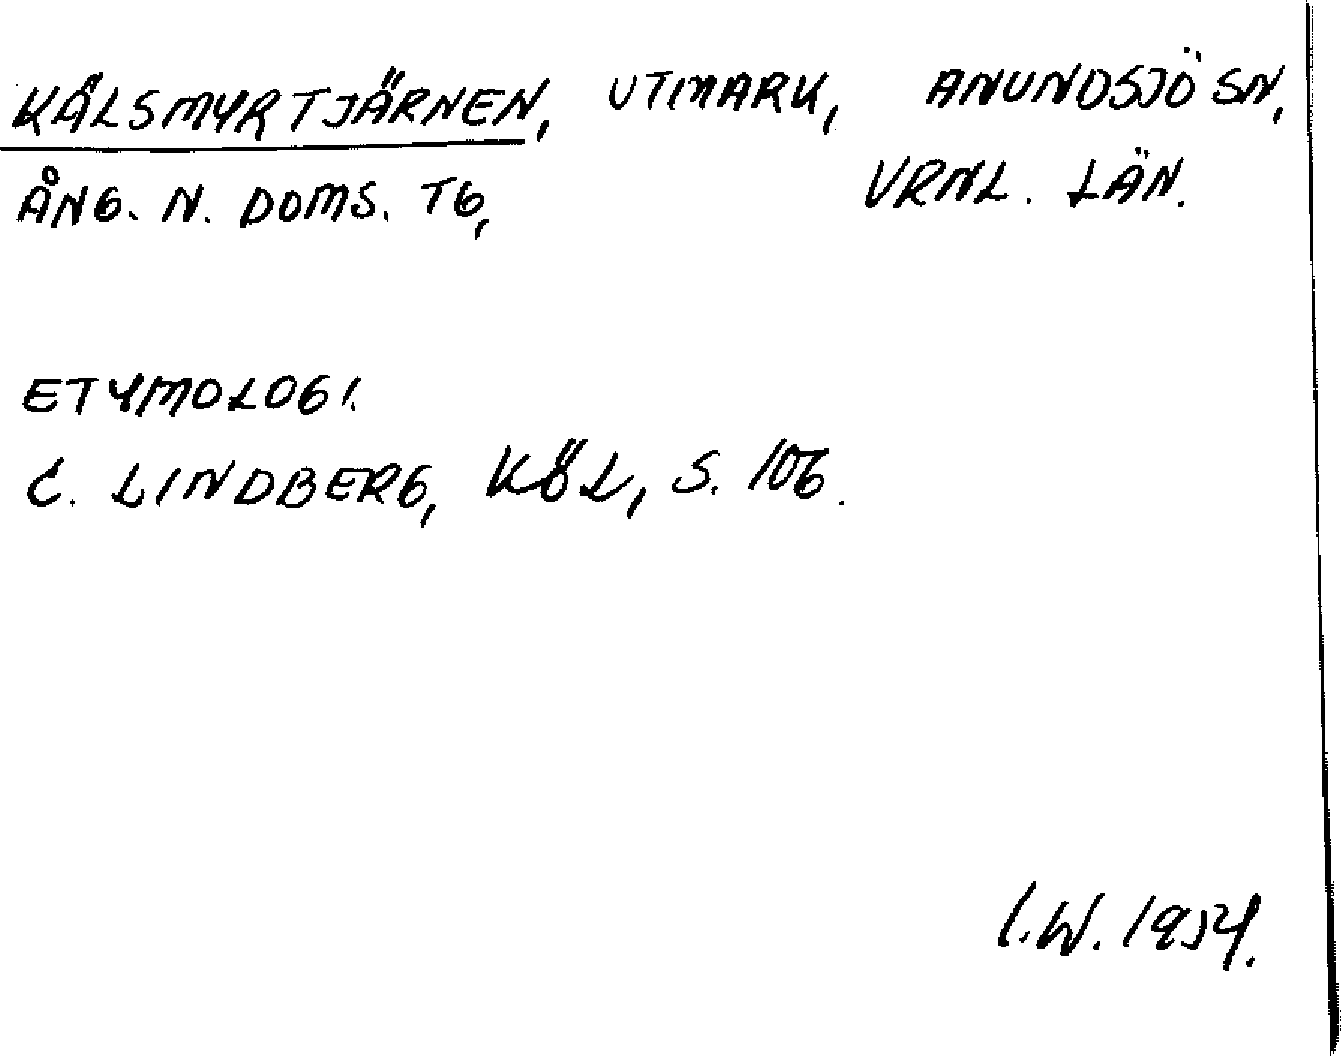 KÅLSMYRTJÄRNEN, UTMARK, ANUNDSJÖ SN,
ÅNG. N. DOMS. TG, VRNL. LÄN.
ETYMOLOGI.
C. LINDBERG, KÖL, S. 106.
I.W. 1954.